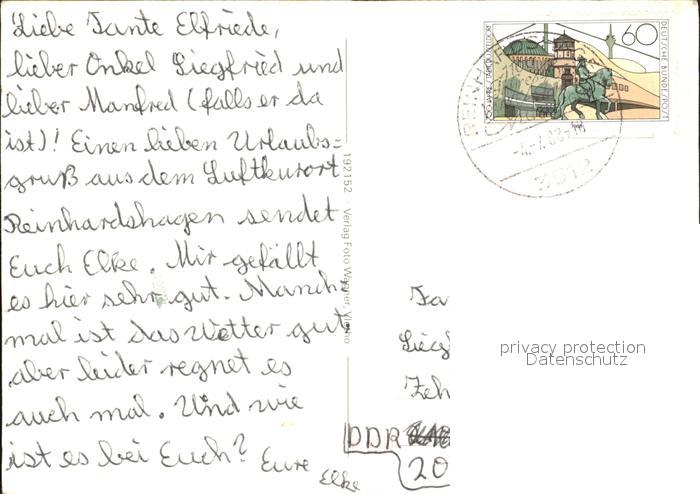 Liebe Tante Elfriede,
lieber Onkel Siegfried und
lieber Manfred (falls er da
ist)! Einen lieben Urlaubs=
gruß aus dem Luftkurort
Reinhardshagen sendet
Euch Elke. Mir gefällt
es hier sehr gut. Manch-
mal ist das Wetter gut,
aber leider regnet es
auch mal. Und wie
ist es bei Euch? Eure
Elke
192152 Verlag Foto
60
DEUTSCHE BUNDESPOST
3512
Ta
Sieg
Zeh
DDR
20
privacy protection
Datenschutz